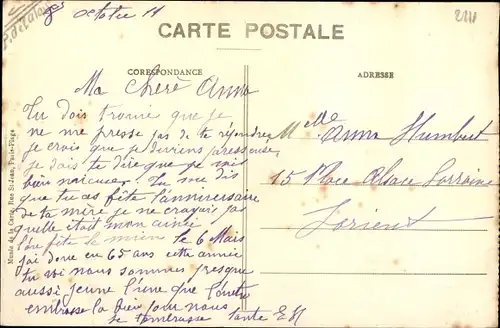 8 octobre 11
CARTE POSTALE
CORESPONDANCE
ADRESSE
Ma Cherè Anna
Tu dois trouvé que je
ne me presse pas de te répondre
je crois que je deviens presseuse
je dois te dire que je suis
bien Tu me dis
que tu as fêté l'anniversaire
de ta mère je ne croyais pas
quelle était mon ainée
l'on fête le mien le 6 Mais
jai donc eu 65 ans cette année
tu voi nous sommes presque
aussi jeune l'une que l'autre
embrasse la bien pour nous
je tembrasse tante EH
Mlle Anna Humbert
15 Place Alsace Lorraine
Lorient
Musée de la Carte, Rue St-Jean, Paris-Plage